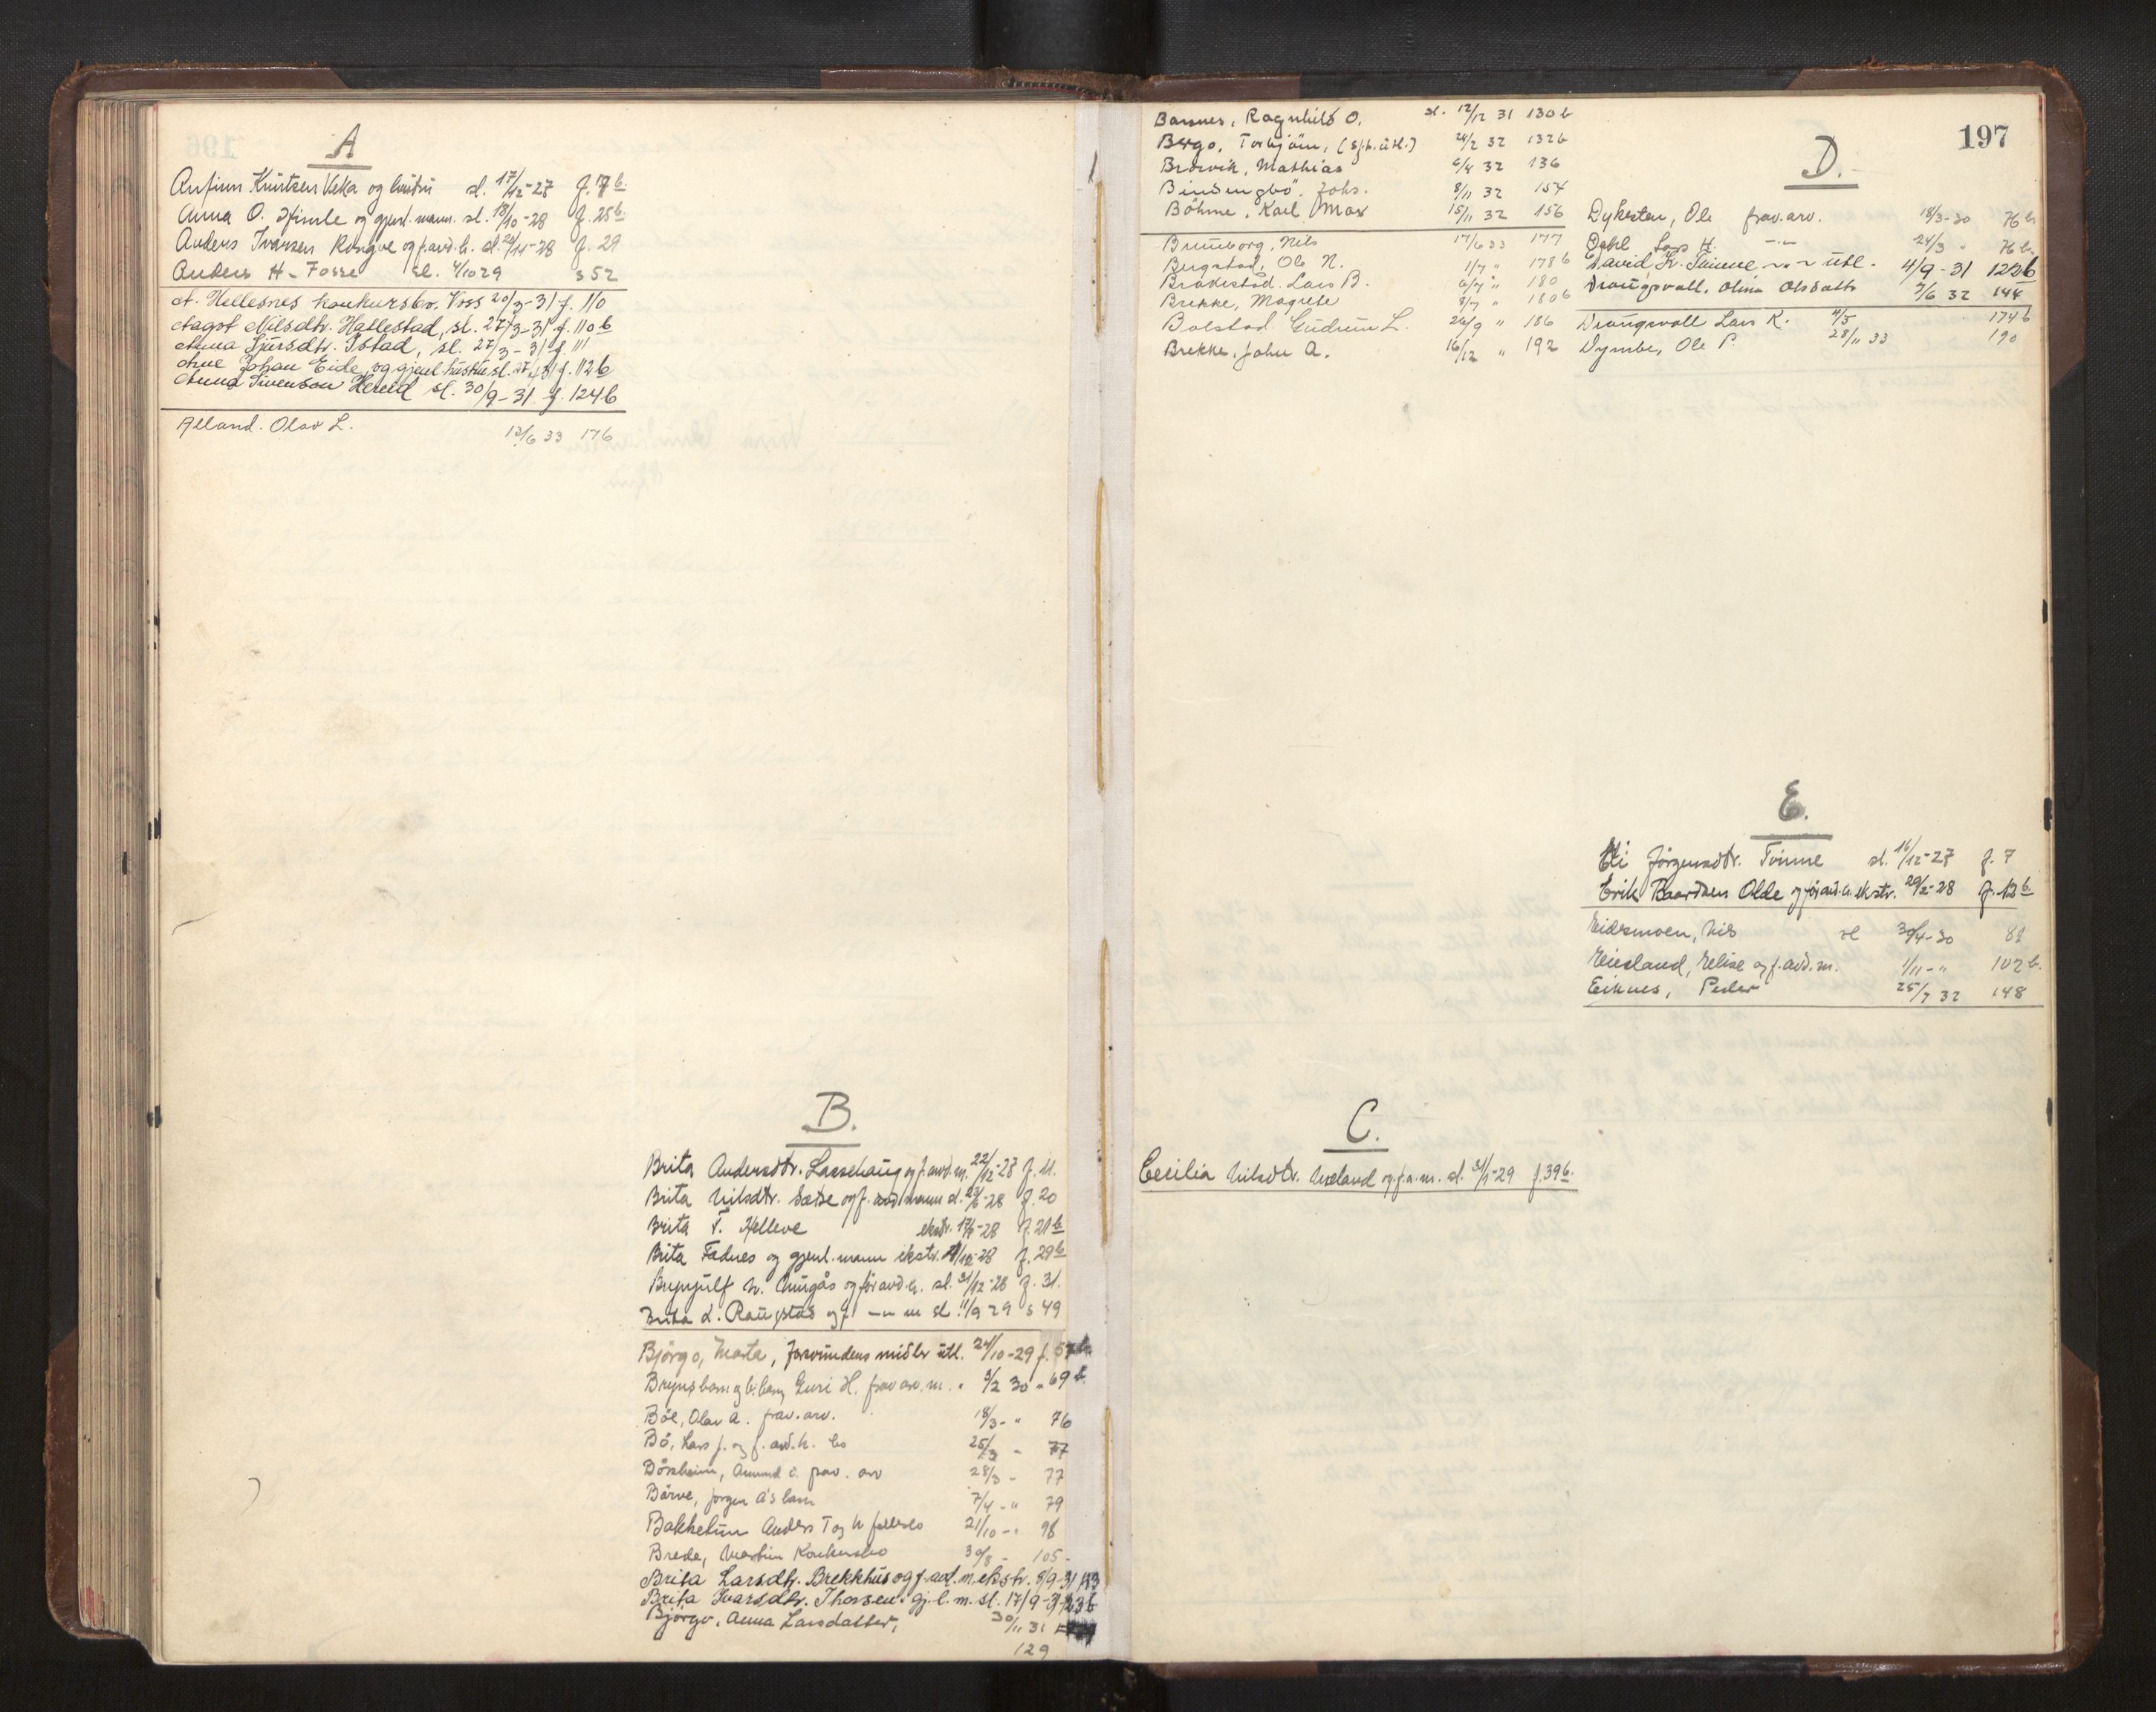 A
Anfinn Knutsen Væka og hustru sl. 17/12-27 f. 7b.
Anna O. Himle og gjenl. mann. sl. 18/10-28 f. 25b
Anders Ivarsen Rongve og f. avd. h. sl. /11-28 f. 29
Anders H. Fosse sl. 4/10 29 s 52
A. Hellesnes konkursbo. Voss 20/3-31 f. 110
Aagot Nilsdtr. Hallestad, sl. 27/3-31 f. 110b
Anna Sjursdtr. Istad, sl. 27/3-31 f. 111
Arne Johan Eide, og gjenl hustru sl. f. 112b
Anna Svenson Hereid sl. 30/9-31 f. 124b
Alland. Olav L. 13/6 33 176
B.
Brita Andersdtr. Lassehaug og f. avd. m. 22/12-27 f. 11.
Brita Nilsdtr. Sæte og f. avd. mann sl. -28 f. 20
Brita T. Helleve ekstr. -28 f. 21b
Brita Fadnes og gjenl. mann ekstr. -28 f. 29b
Brynjulf N. og før avd. h. sl. 31/12-28 f. 31.
Brita L. og f. — m sl. 11/9 29 s 49
Bjørgo, Marta, forsvundens midler utl. 24/10-29 f. 57b
Guri H. prov. arv. m. " 3/2 30 " 69b.
Bøe, Olav A. prov. arv. 18/3- " 76
Bø, Lars J. og f. avd. h. bo 25/3 - 77
prov. arv 28/3 - 77
Børve, Jørgen A's barn 7/4 - " 79
Bakketun Anders T og h fellesbo 21/10 - " 98
Brede, Martin Konkursbo 30/8 - 105-
Brita Larsdtr. Brekkhus og f. avd. m. ekstr. 8/9-31
Brita Ivarsdtr. Thorsen. gj. l. m. sl. 17/9-31
Bjørgo. Anna Larsdatter, 30/11 31
129
197
Ragnhild O. sl. 12/12 31 130b
Bergo, Torbjørn, 24/2 32 132b
Mathias 6/4 32 136
Johs. 8/11 32 154
Böhme, Karl Max 15/11 32 156
Brunborg, Nils 17/6 33 177
Bergstad, Ole N. 1/7 " 178b
Lars B. 6/7 " 180
Brekke, Magrete 8/7 " 180b
Bolstad. Gudrun L. 26/9 " 186
Brekke, John A. 16/12 " 192
D.
Dyketen, Ole prov. arv. 18/3-30 76b
Dahl Lars H. —"— 24/3 - 76b.
David L. Tvinne —"— utl. 4/9-31 122b
Draugsvoll, Olina Olsdatter 7/6 32 144
Draugsvoll Lars K. 11/5 174b
Dymbe, Ole P. 28/11 33 190
E.
Eli Jørgensdtr. Tvinne sl. 16/12-27 f. 7
Erik Baardsen Olde og før avd. h. ekstr. 29/2-28 f. 12b
Eidsmoen, Nils sl 30/4-30 81
Elise og f. avd. m. 1/11-" 102b.
Eiknes, Peder 25/7 32 148
C.
Cecilia Nilsdtr. og. f. a. m. sl. 31/1-29 f. 39b.